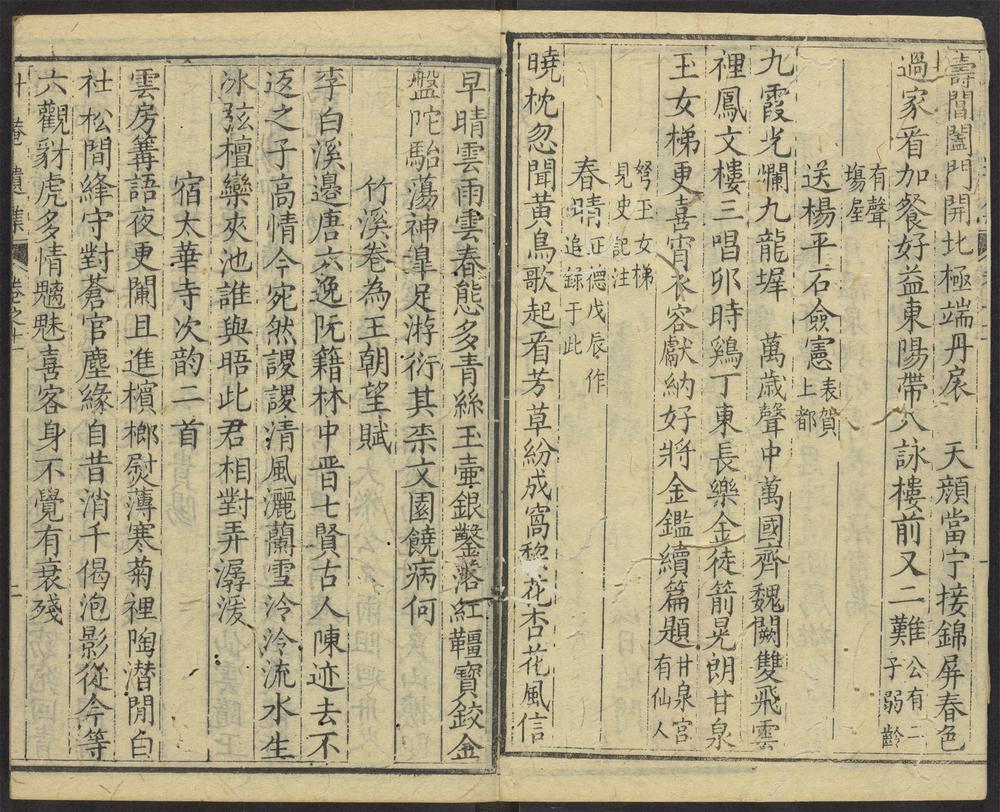 壽閶闔門開北極端丹扆　天顏當宁接錦屏春色
過家看加餐好益東陽帶八詠樓前又二難公有二子弱齡
有聲塲屋
送楊平石僉憲表賀上都
九霞光爛九龍墀　萬歲聲中萬國齊魏闕雙飛雲
裡鳳文樓三唱夘時鷄丁東長樂金徒箭晃朗甘泉
玉女梯更喜宵衣容獻納好將金鑑續篇題甘泉宮有仙人
弩玉女梯見史記注
春晴正德戊辰作追録于此
曉枕忽聞黃鳥歌起看芳草紛成窩黎花杏花風信
早晴雲雨雲春態多青絲玉壷銀鑿落紅韁寳鉸金
盤陀駘蕩神皐足游衍其柰文園饒病何
竹溪卷為王朝望賦
李白溪邉唐六逸阮籍林中晋七賢古人陳迹去不
返之子高情今宛然謖謖清風灑蘭雪泠泠流水生
冰弦檀欒夾池誰與晤此君相對弄潺湲
宿太華寺次韵二首
雲房篝語夜更闌且進檳榔慰薄寒菊裡陶潜閒白
社松間絳守對蒼官塵緣自昔消千偈泡影從今等
六觀豺虎多情魑魅喜客身不覺有衰殘
升菴遺集　卷之十一